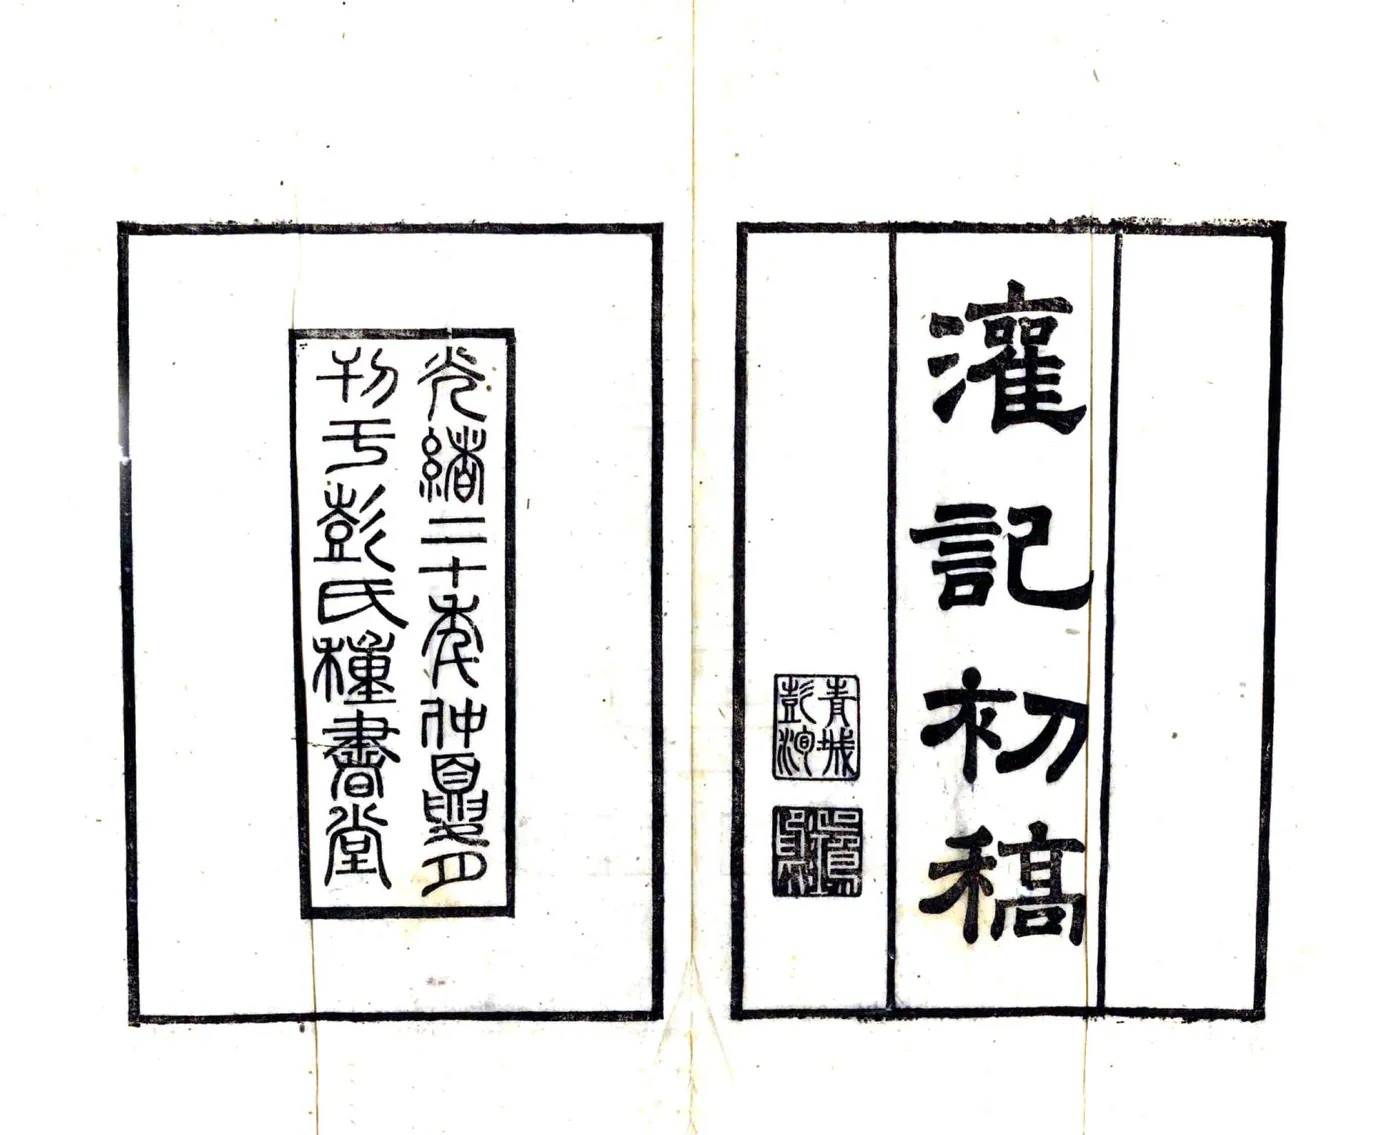 灌記初稿
青城
彭洵
光緒二十年仲夏月
刊于彭氏種書堂